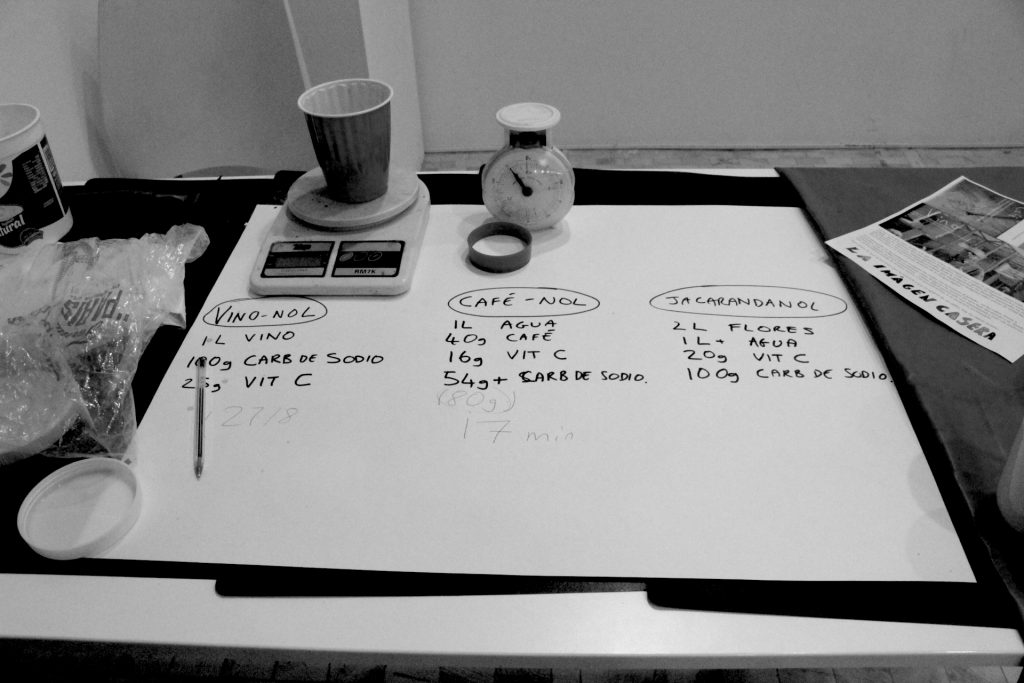 VINO-NOL
1L VINO
100g CARB DE SODIO
25g VIT C
27/8
CAFÉ-NOL
1L AGUA
40g CAFÉ
16g VIT C
54g+ CARB DE SODIO.
(80g)
17 min
JACARANDANOL
2L FLORES
1L+ AGUA
20g VIT C
100g CARB DE SODIO.
LA IMAGEN CASERA